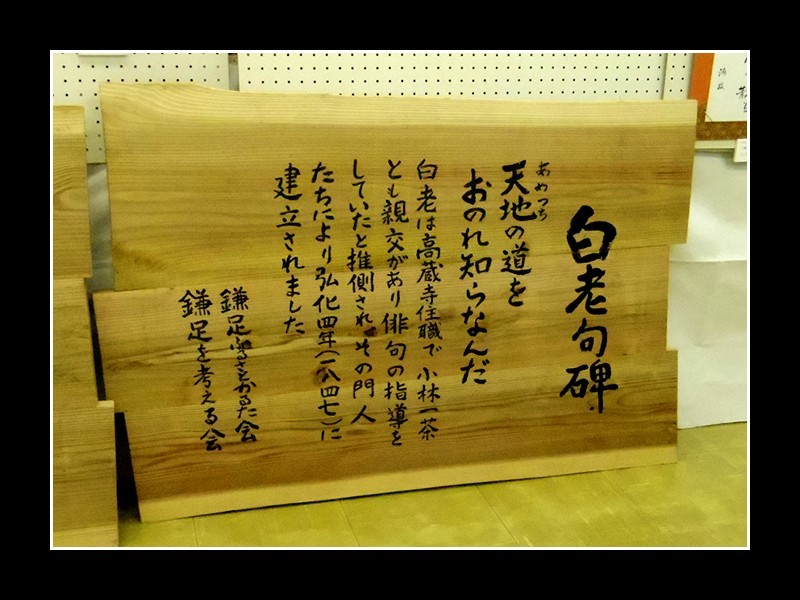 白老句碑
あめつち
天地の道を
おのれ知らなんだ
白老は高蔵寺住職で小林一茶
とも親交があり俳句の指導を
していたと推側され、その門人
たちにより弘化四年(一八四七)に
建立されました
鎌足を考える会